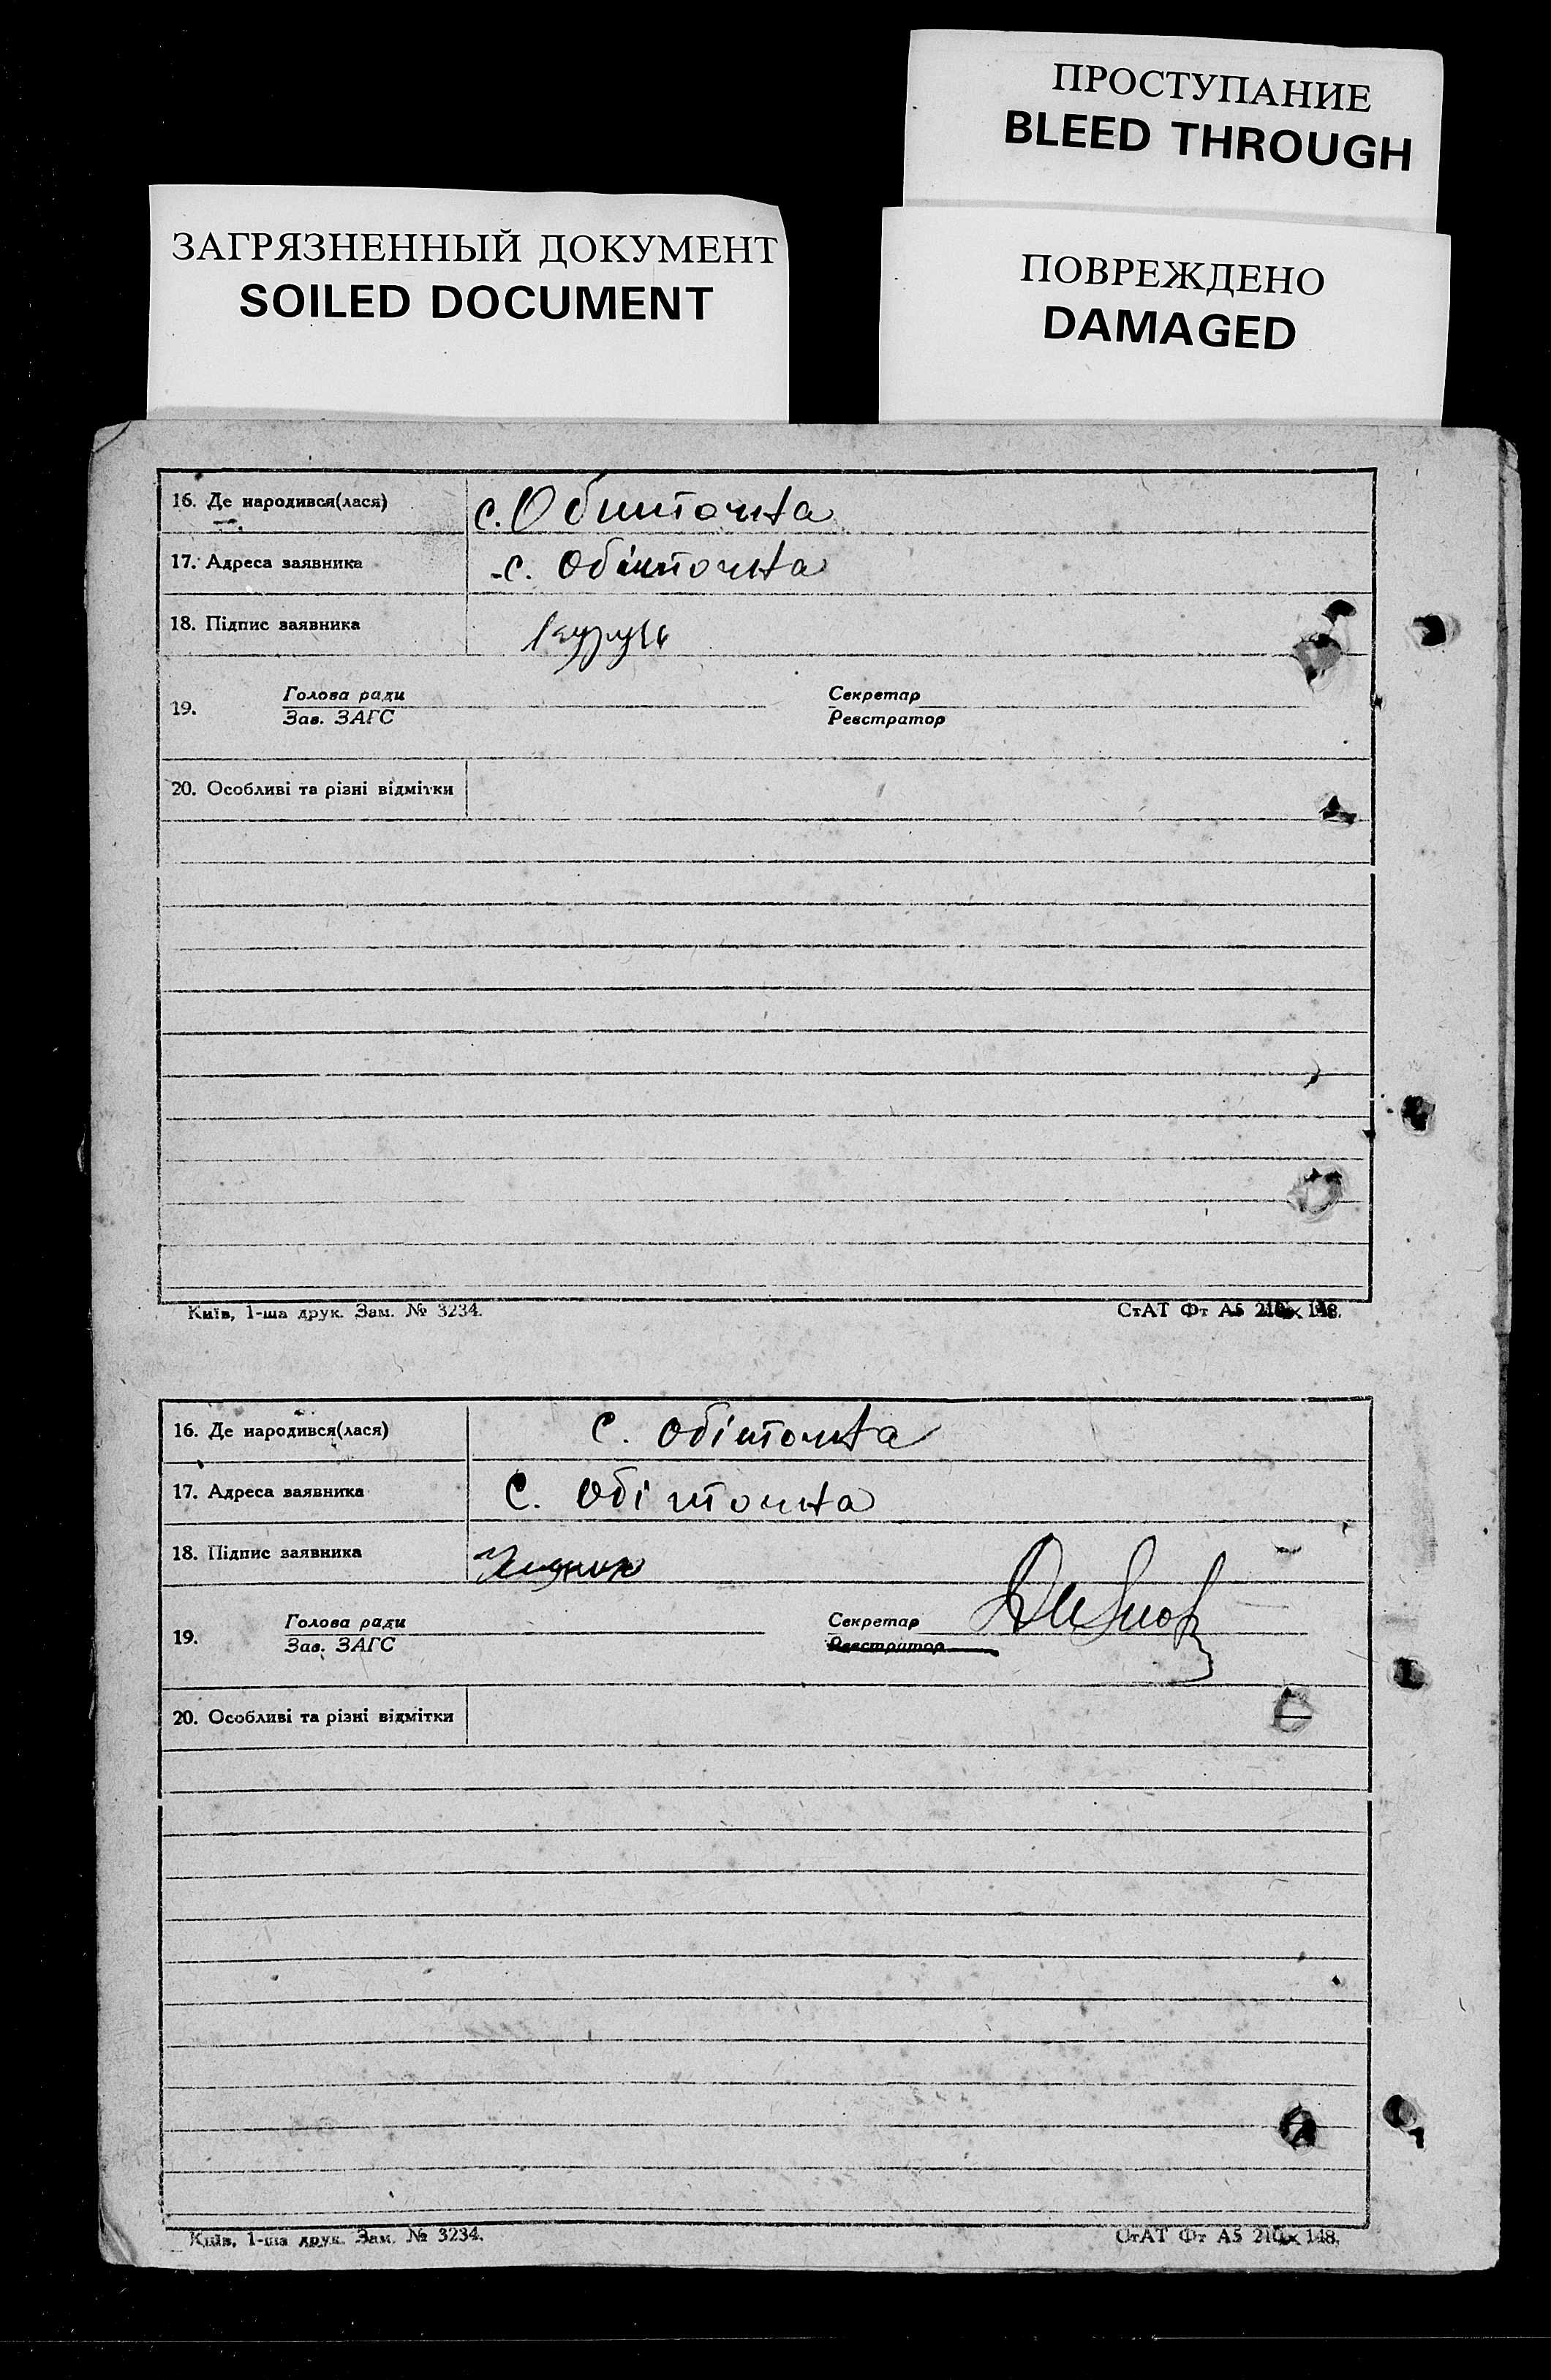 ПРОСТУПАНИЕ
BLEED THROUGH
ЗАГРЯЗНЕННЫЙ ДОКУМЕНТ
SOILED DOCUMENT
ПОВРЕЖДЕНО
DAMAGED
16. Де народився(лася) с. Обиточна
17. Адреса заявника с. Обіточна
18. Підпис заявника
19. Голова ради Секретар
Зав. ЗАГС Реєстратор
20. Особливі та різні відмітки
Київ, 1-ша друк. Зам. № 3234. СтАТ Фт А5 210×148.
16. Де народився(лася) с. Обіточна
17. Адреса заявника с. Обіточна
18. Підпис заявника
19. Голова ради Секретар
Зав. ЗАГС Реєстратор
20. Особливі та різні відмітки
Київ, 1-ша друк. Зам. № 3234. СтАТ Фт А5 210×148.